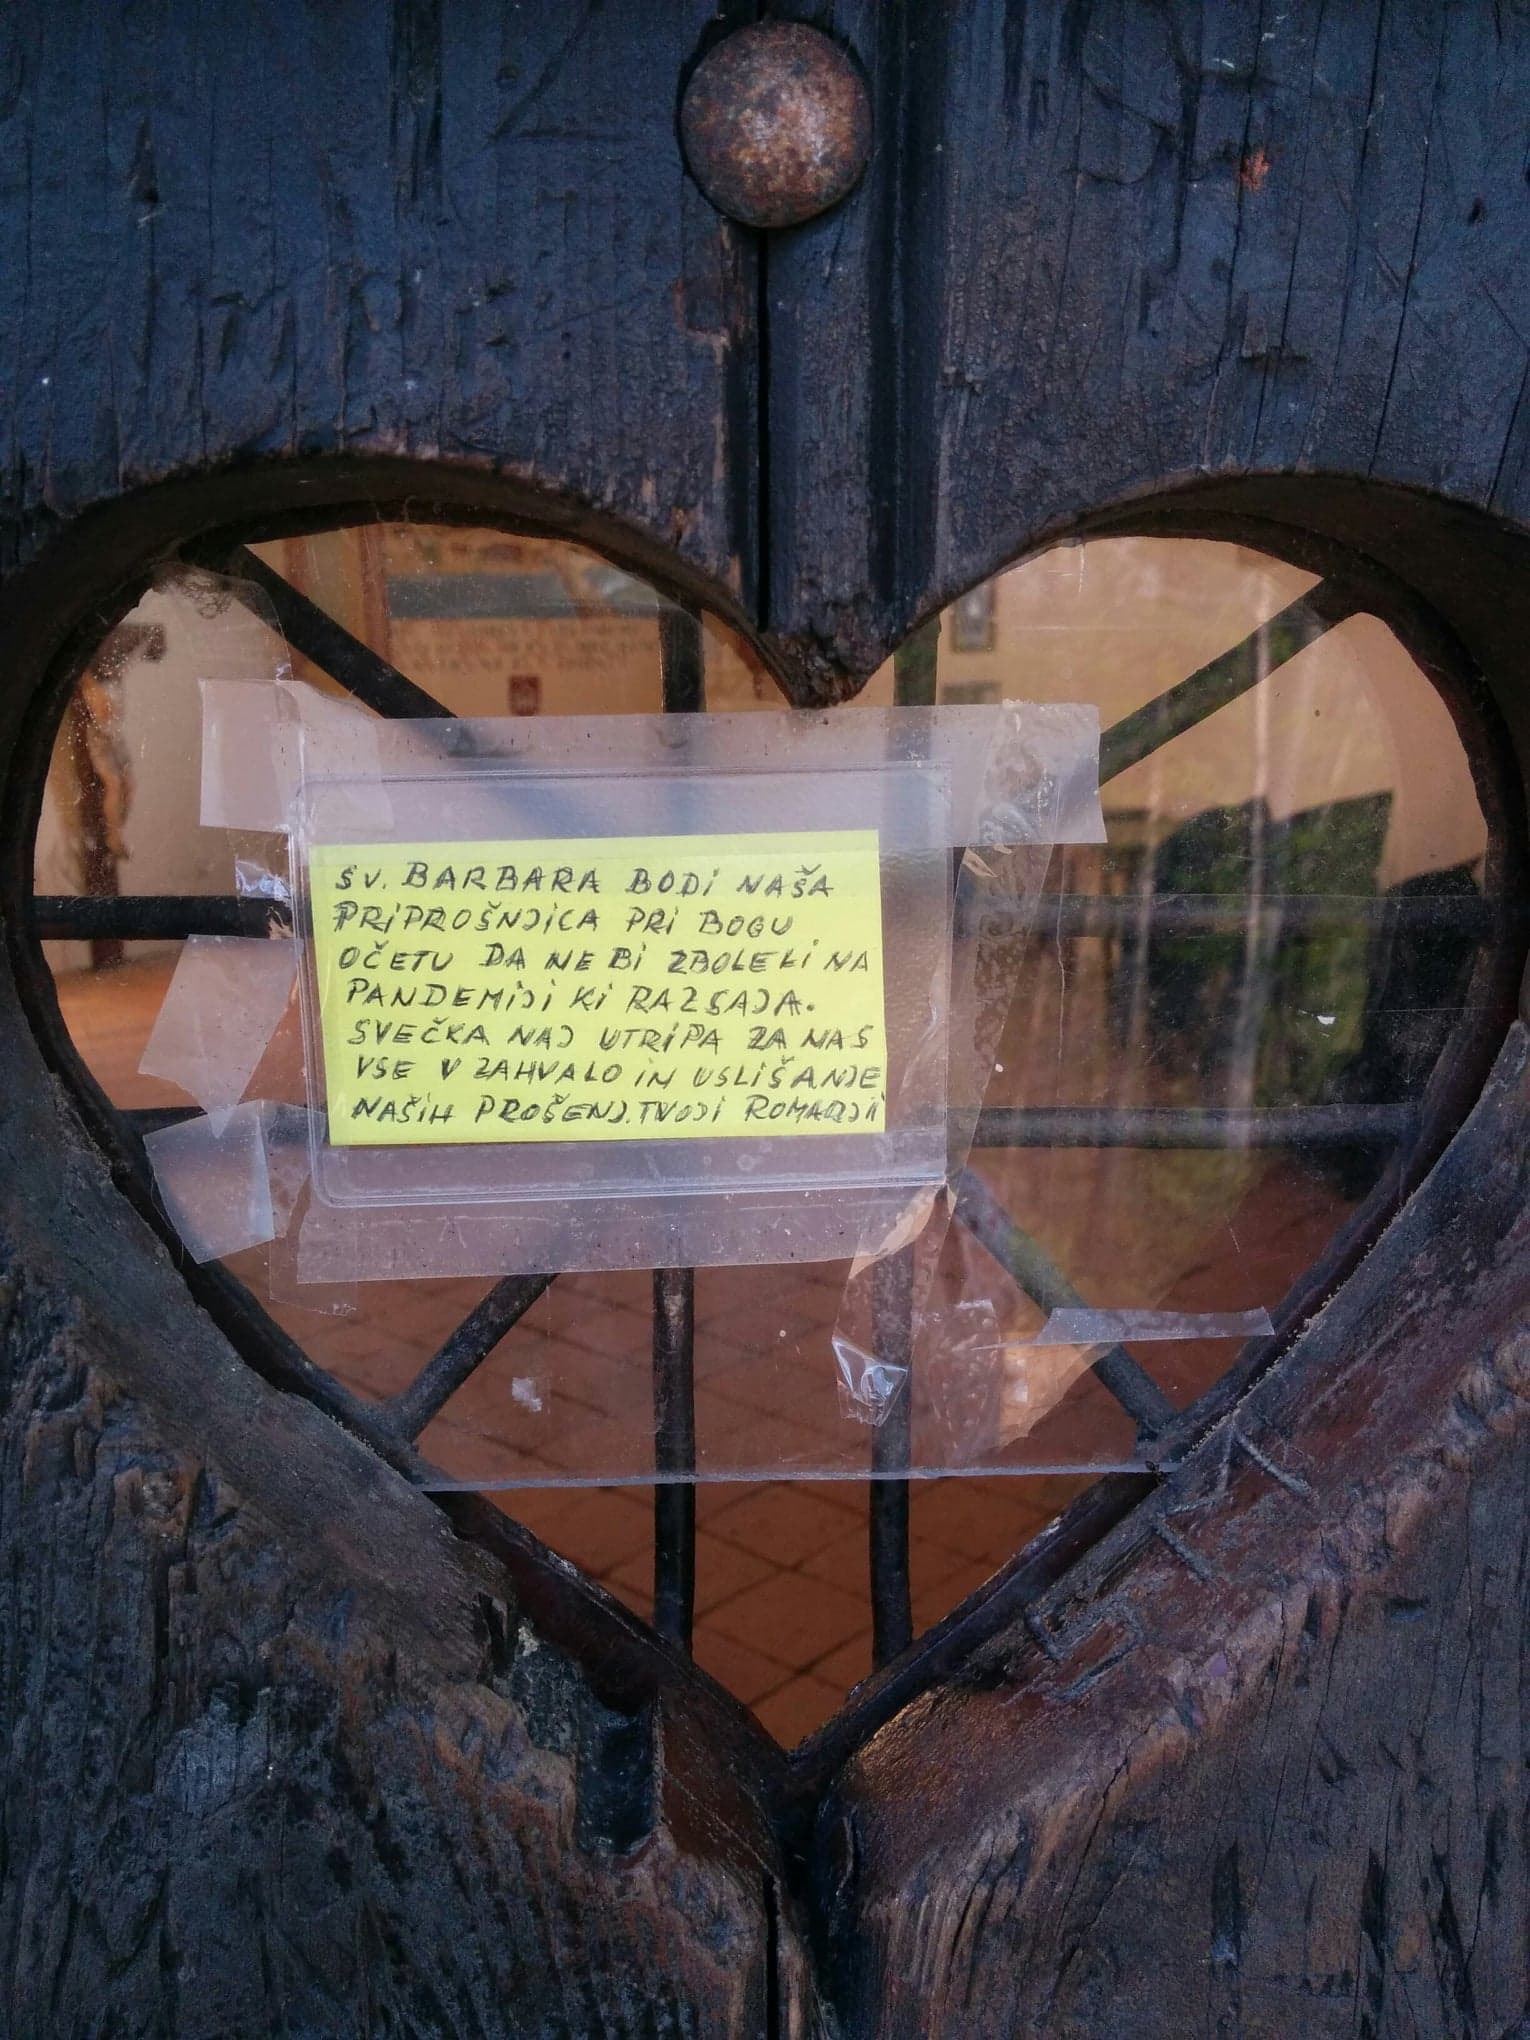 SV. BARBARA BODI NAŠA
PRIPROŠNJICA PRI BOGU
OČETU DA NE BI ZBOLELI NA
PANDEMIJI KI RAZSAJA.
SVEČKA NAJ UTRIPA ZA NAS
VSE V ZAHVALO IN USLIŠANJE
NAŠIH PROŠENJ. TVOJI ROMARJI